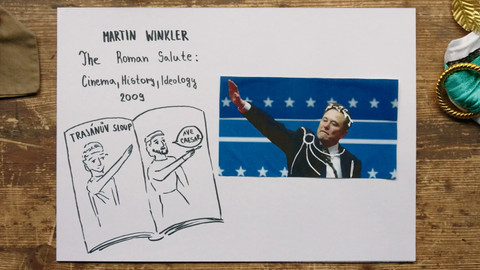 MARTIN WINKLER
The Roman Salute:
Cinema, History, Ideology
2009
TRAJÁNŮV SLOUP
AVE
CAESAR